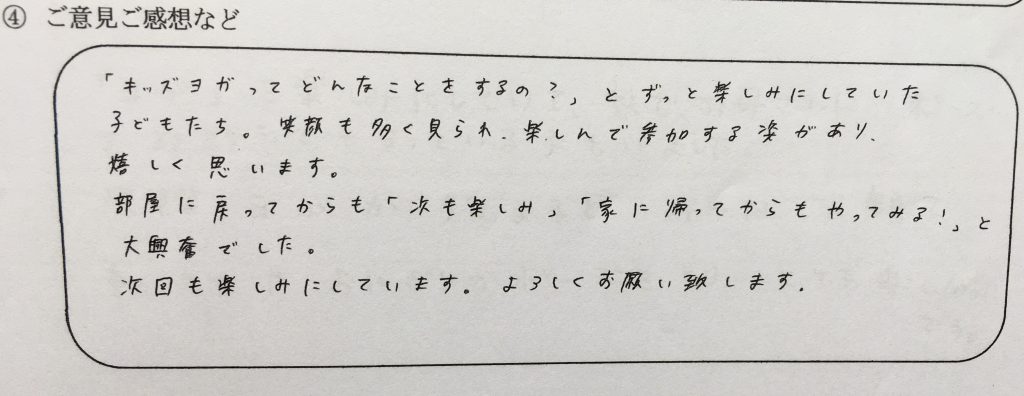 ④ ご意見ご感想など
「キッズヨガってどんなことをするの?」とずっと楽しみにしていた
子どもたち。笑顔も多く見られ、楽しんで参加する姿があり、
嬉しく思います。
部屋に戻ってからも「次も楽しみ」「家に帰ってからもやってみる!」と
大興奮でした。
次回も楽しみにしています。よろしくお願い致します。